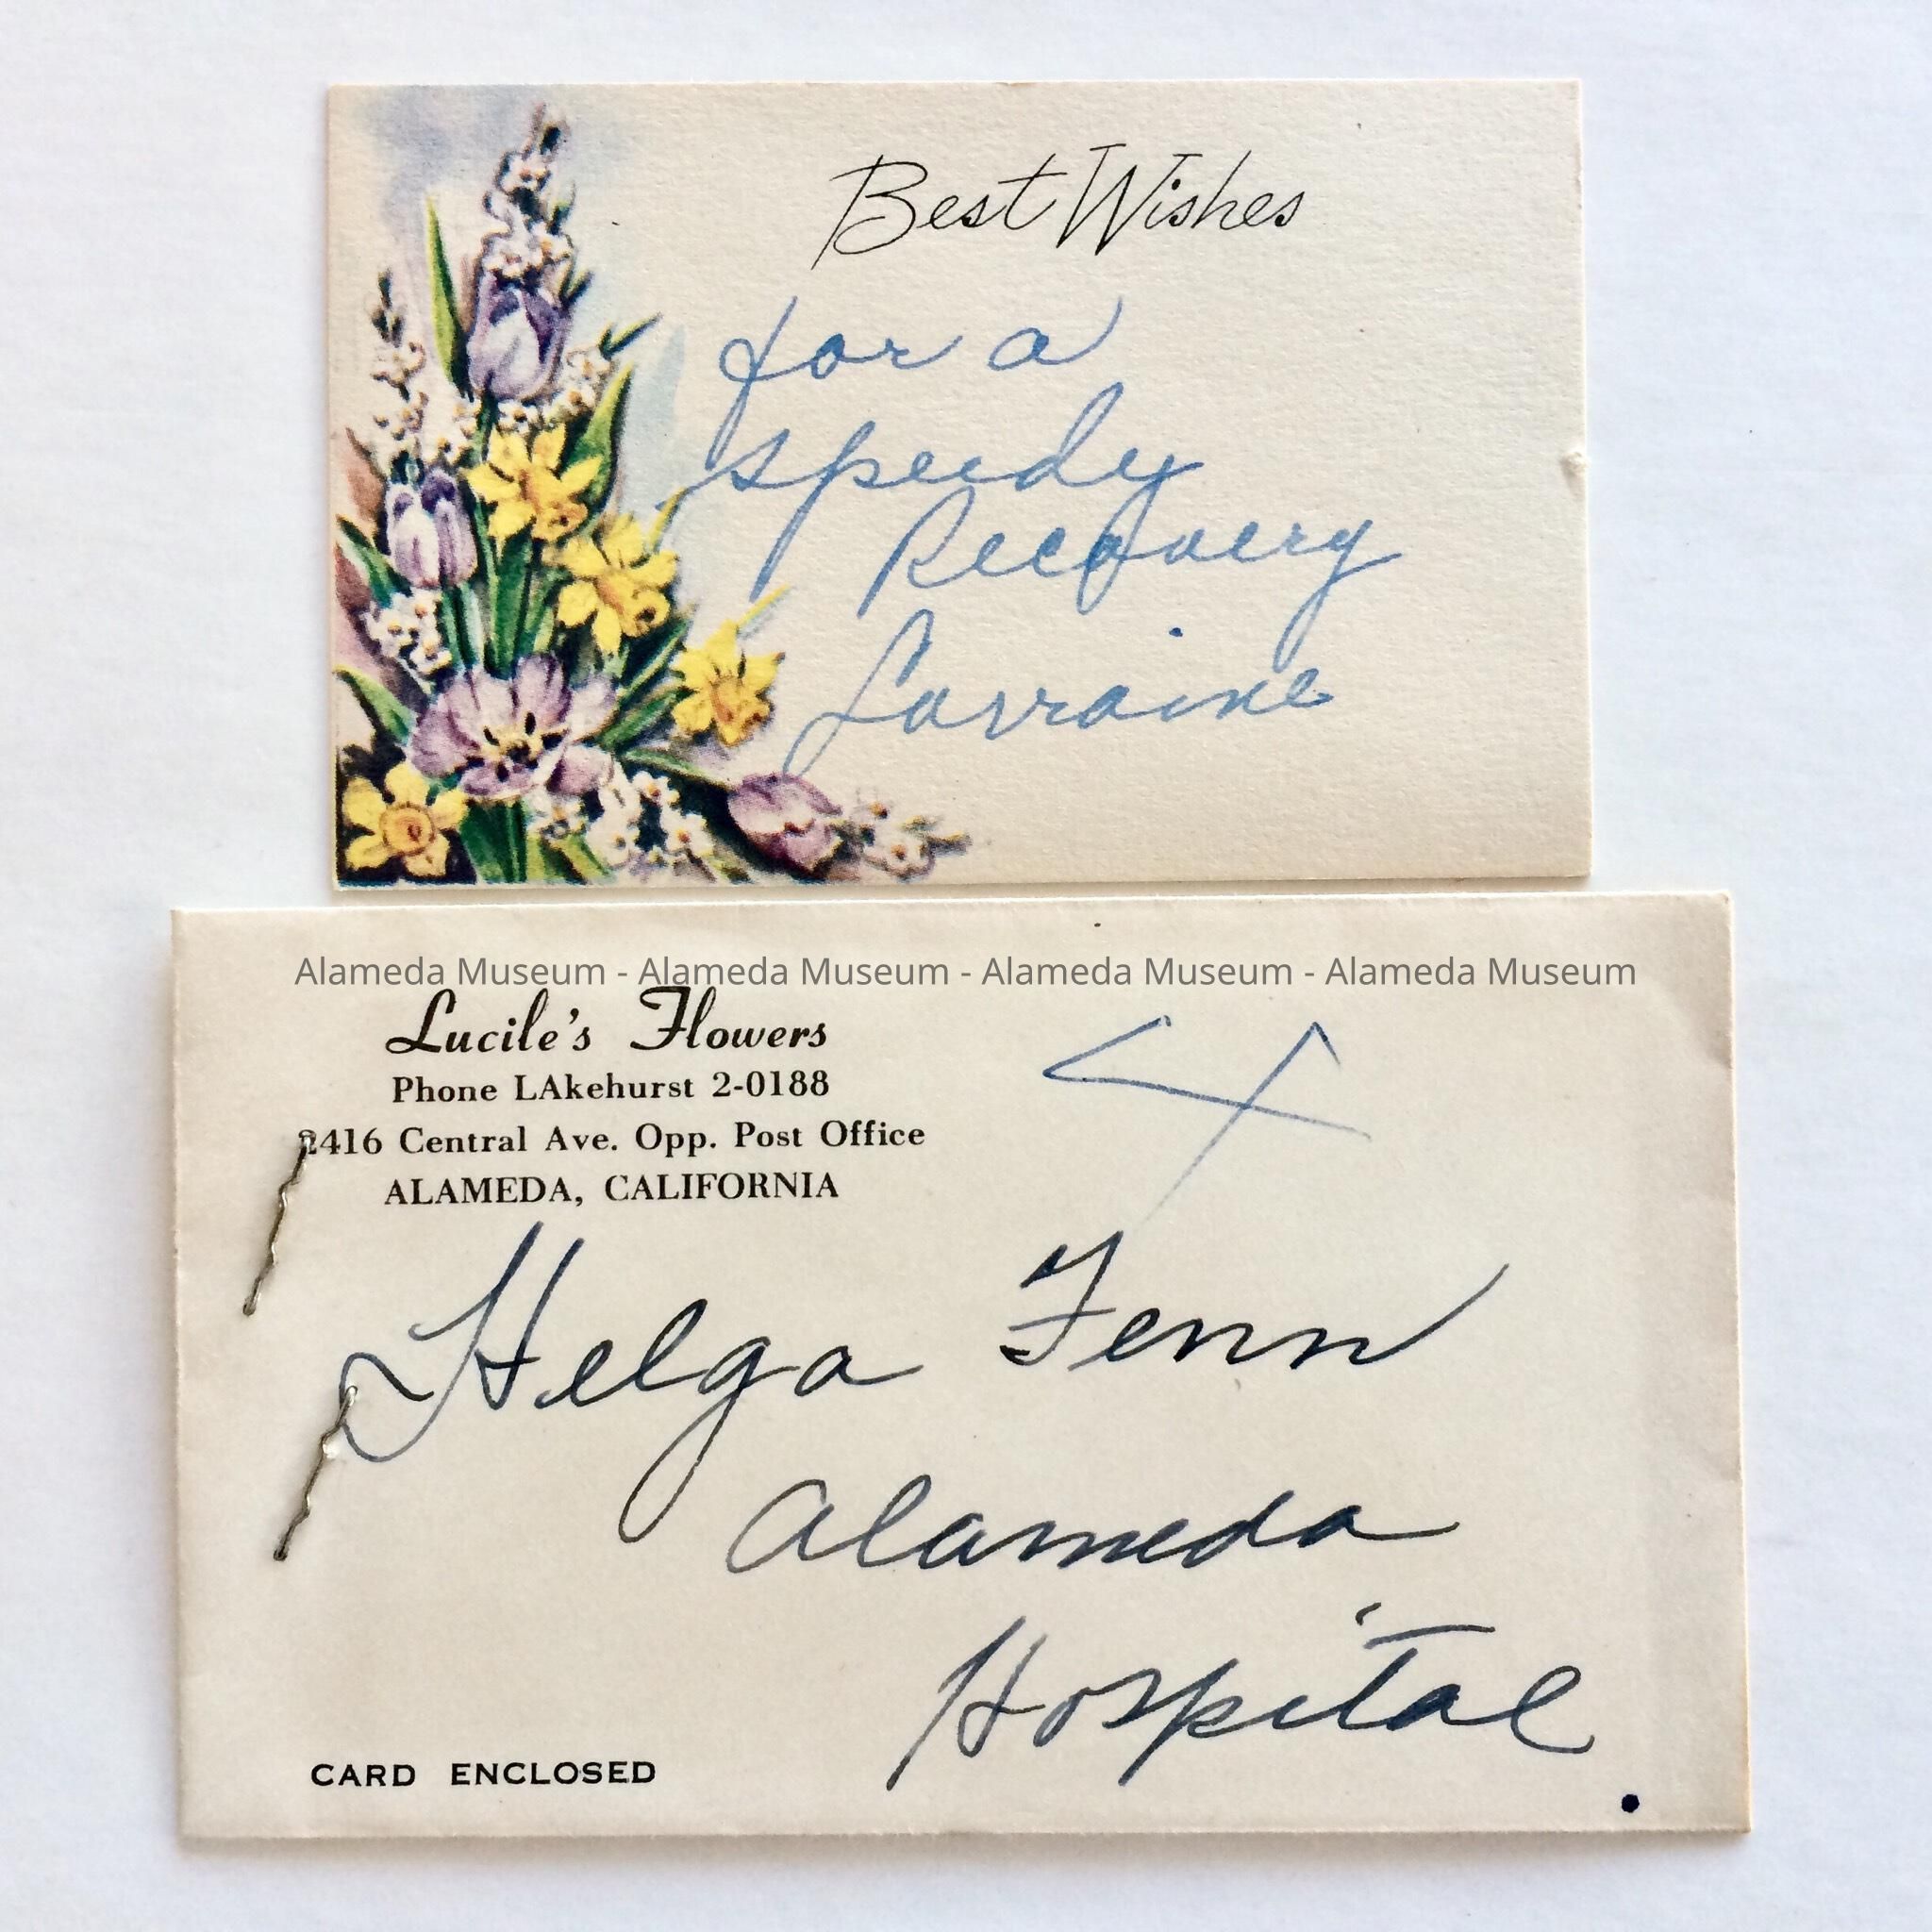 Best Wishes
for a
speedy
Recovery
Lorraine
Alameda Museum - Alameda Museum - Alameda Museum - Alameda Museum
Lucile's Flowers
Phone LAkehurst 2-0188
2416 Central Ave. Opp. Post Office
ALAMEDA, CALIFORNIA
Helga Fenn
Alameda
Hospital
CARD ENCLOSED